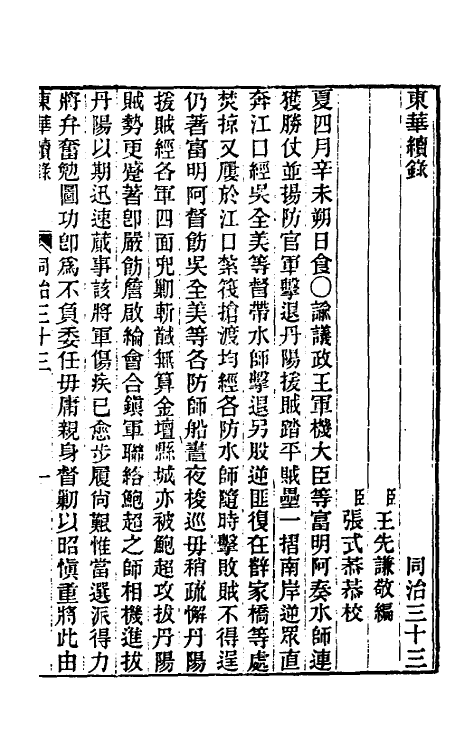 東華續錄　同治三十三
臣王先謙敬編
臣張式恭恭校
夏四月辛未朔日食○諭議政王軍機大臣等富明阿奏水師連
獲勝仗並揚防官軍擊退丹陽援賊踏平賊壘一摺南岸逆眾直
奔江口經吳全美等督帶水師擊退另股逆匪復在辥家橋等處
焚掠又屢於江口紮筏搶渡均經各防水師隨時擊敗賊不得逞
仍著富明阿督飭吳全美等各防師船晝夜梭巡毋稍疏懈丹陽
援賊經各軍四面兜勦斬馘無算金壇縣城亦被鮑超攻拔丹陽
賊勢更蹙著卽嚴飭詹啟綸會合鎮軍聯絡鮑超之師相機進拔
丹陽以期迅速蕆事該將軍傷疾已愈步履尙艱惟當選派得力
將弁奮勉圖功卽爲不負委任毋庸親身督勦以昭愼重將此由
東華續錄　同治三十三　一